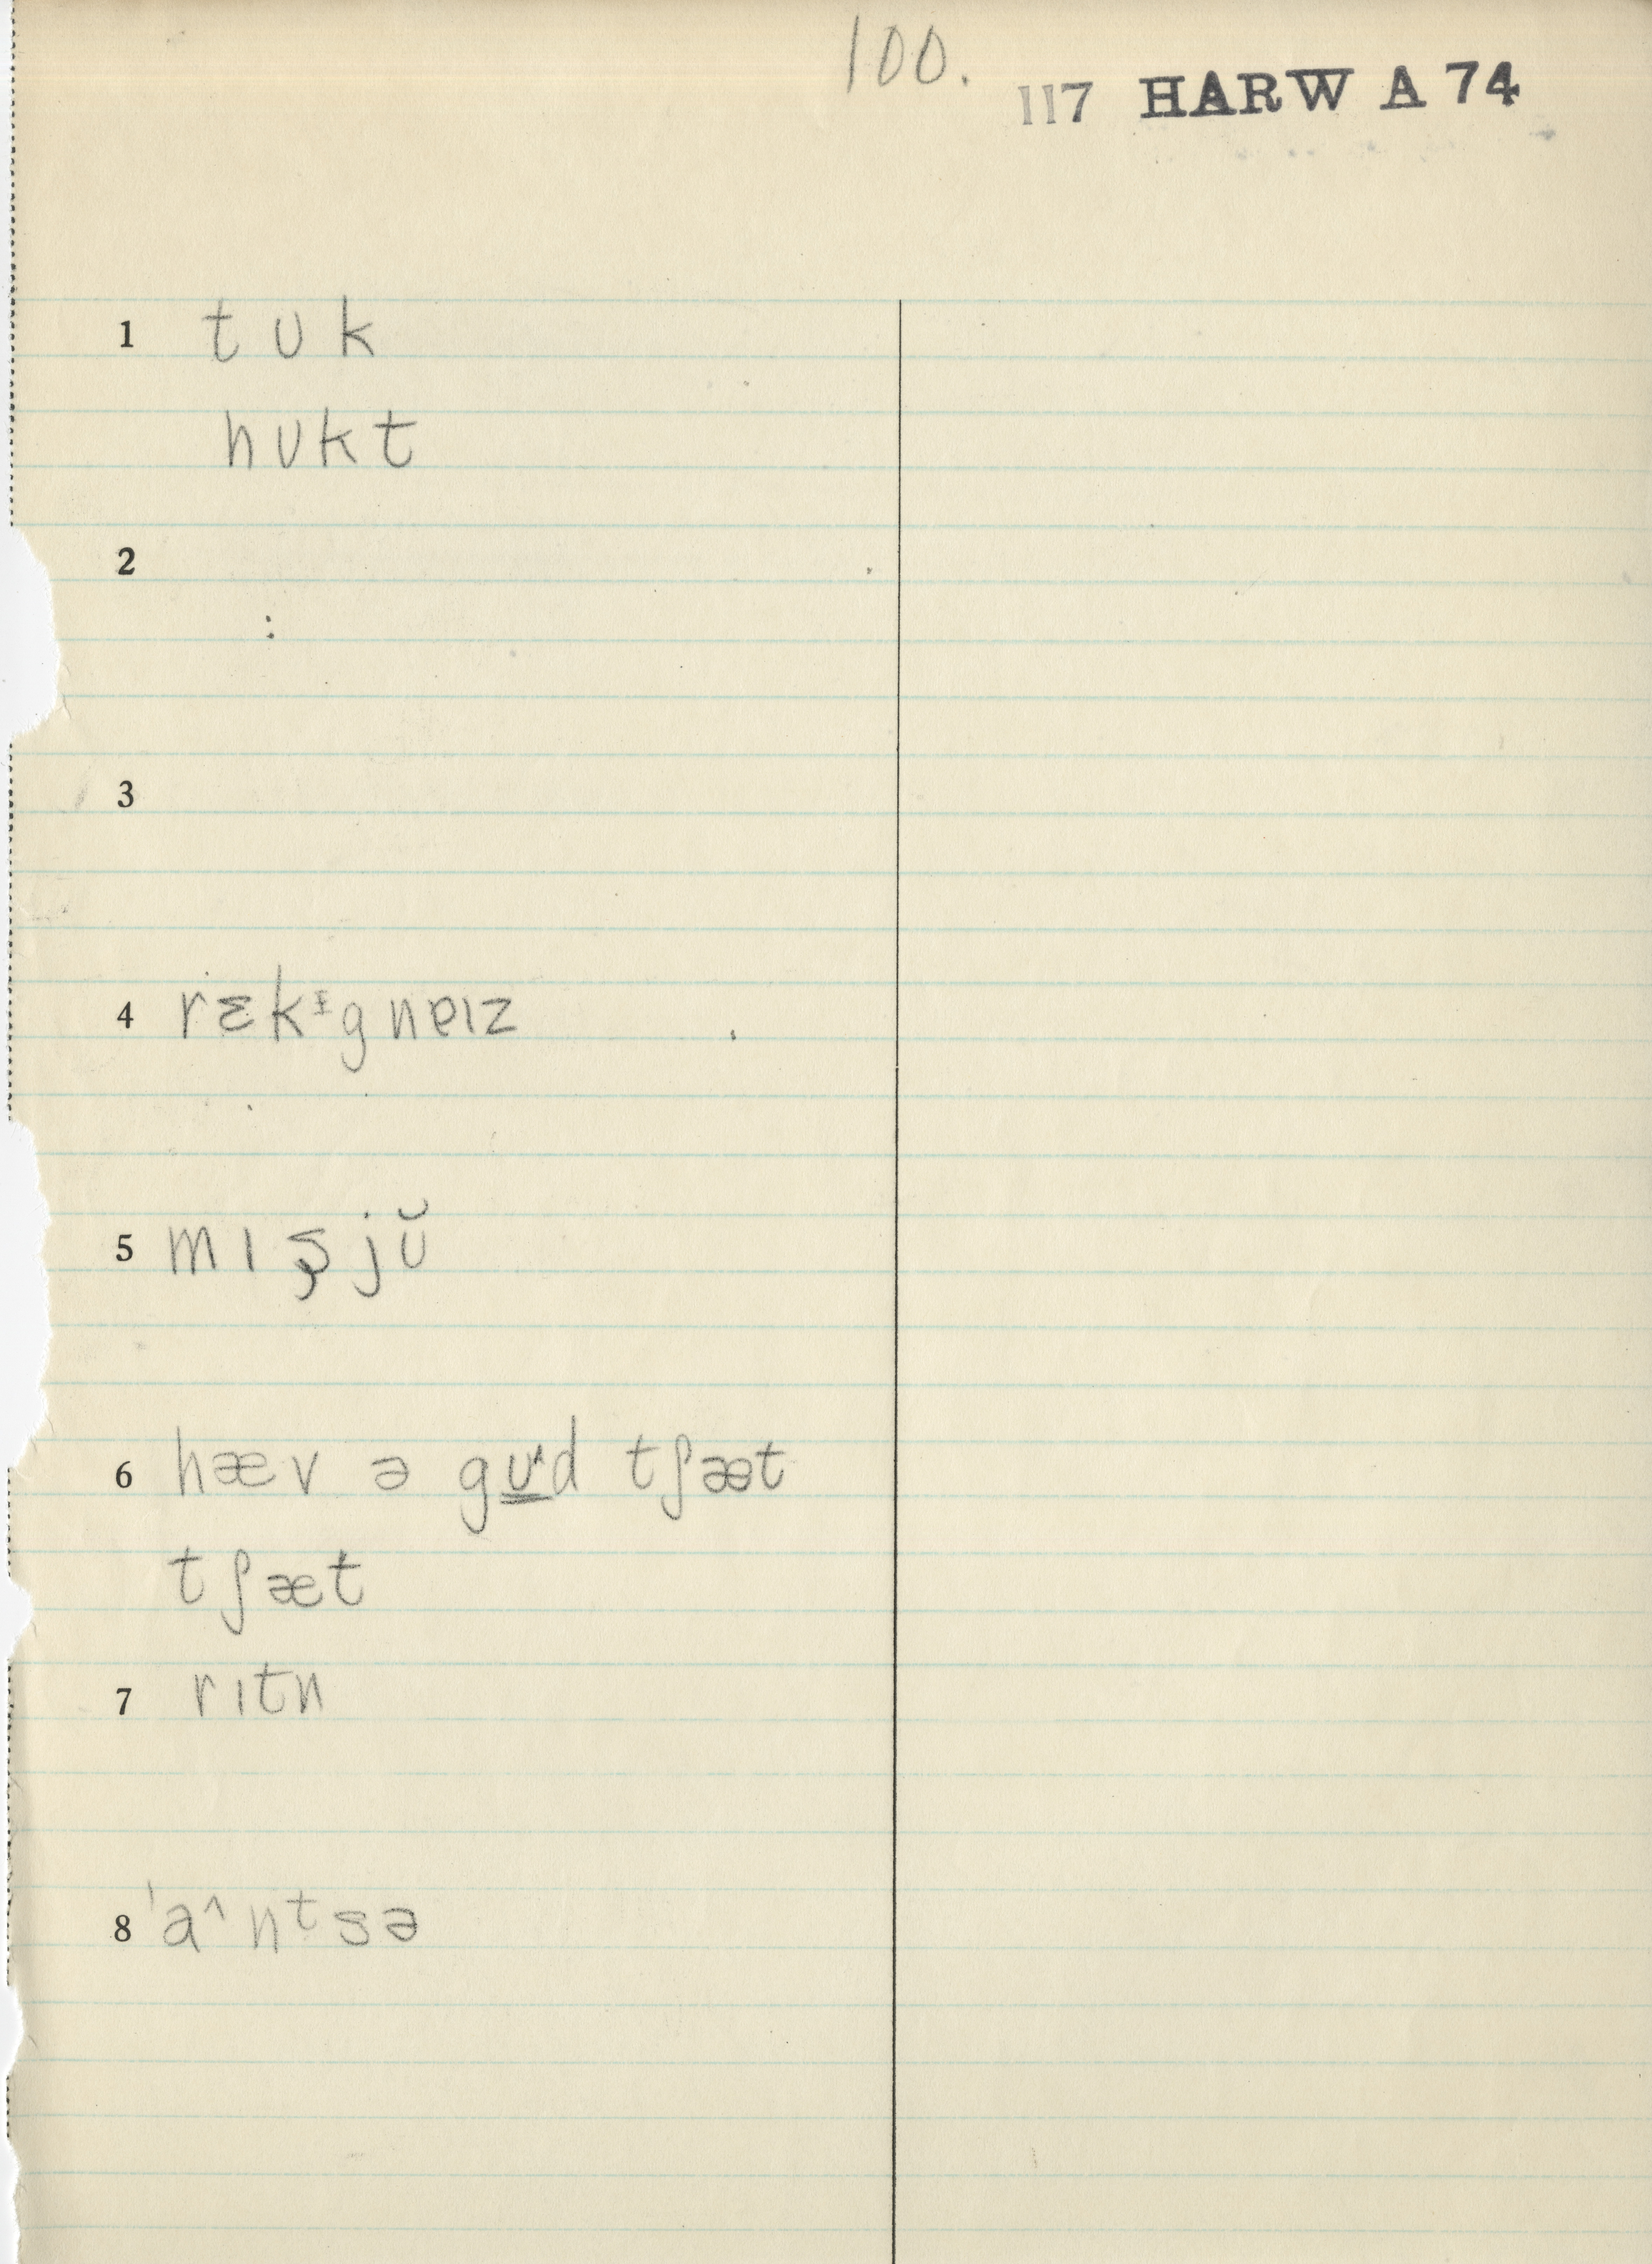 100.
117 HARW A 74
1 tʊk
hʊkt
2
3
4 rɛkᵻgnɐɪz
5 mɪʂjʊ̆
6 hæv ə gʊ̳˄d tʃæt
tʃæt
7 rɪtn
8 ˈa˄nᵗsə